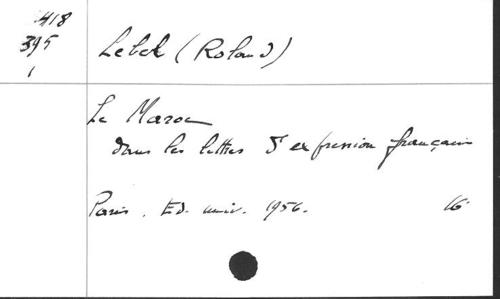 418
395
1
Lebel (Roland)
Le Maroc
dans les lettres d'expression française
Paris. Ed. univ. 1956. 16°